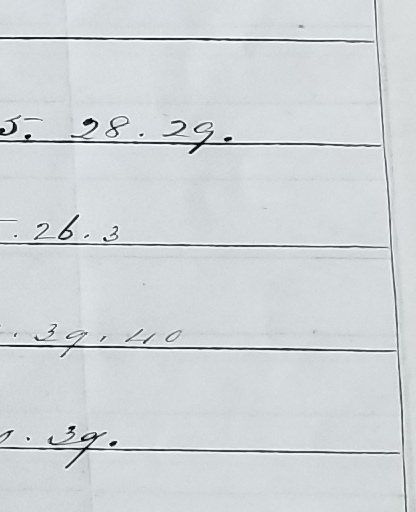 5. 28. 29.
. 26. 3
. 39. 40
. 39.